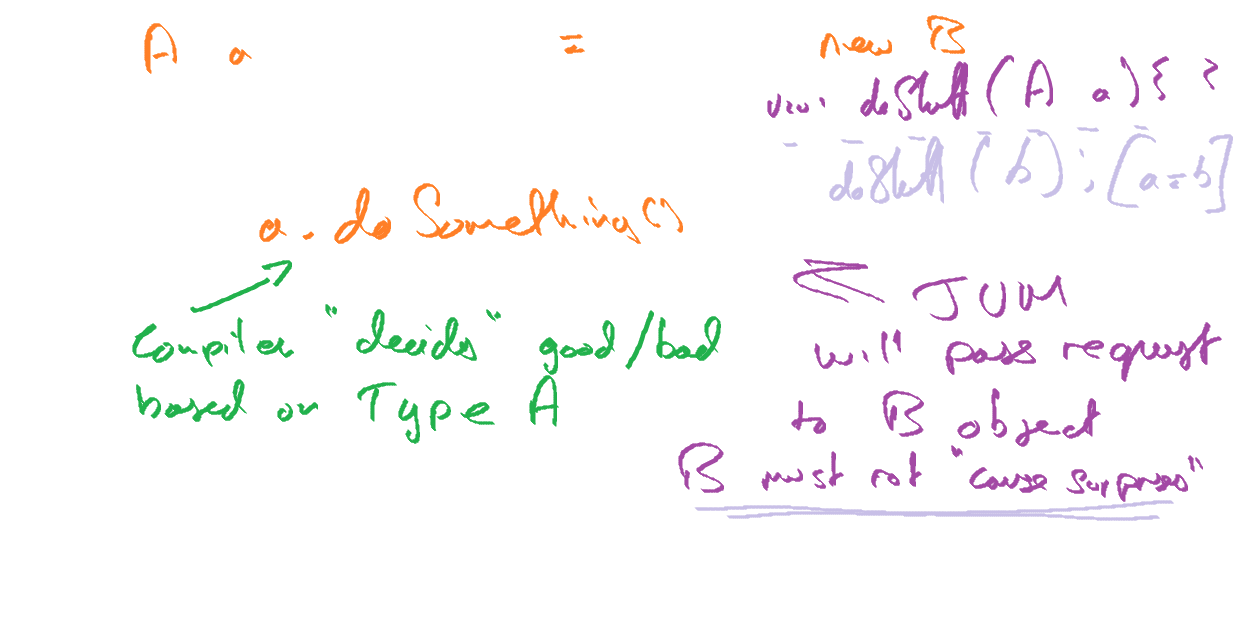 A a = new B
doStuff (A a) { }
doStuff (b) ; [a = b]
a. do Something()
Compiler "decides" good/bad
based on Type A
JVM
will pass request
to B object
B must not "cause surprises"